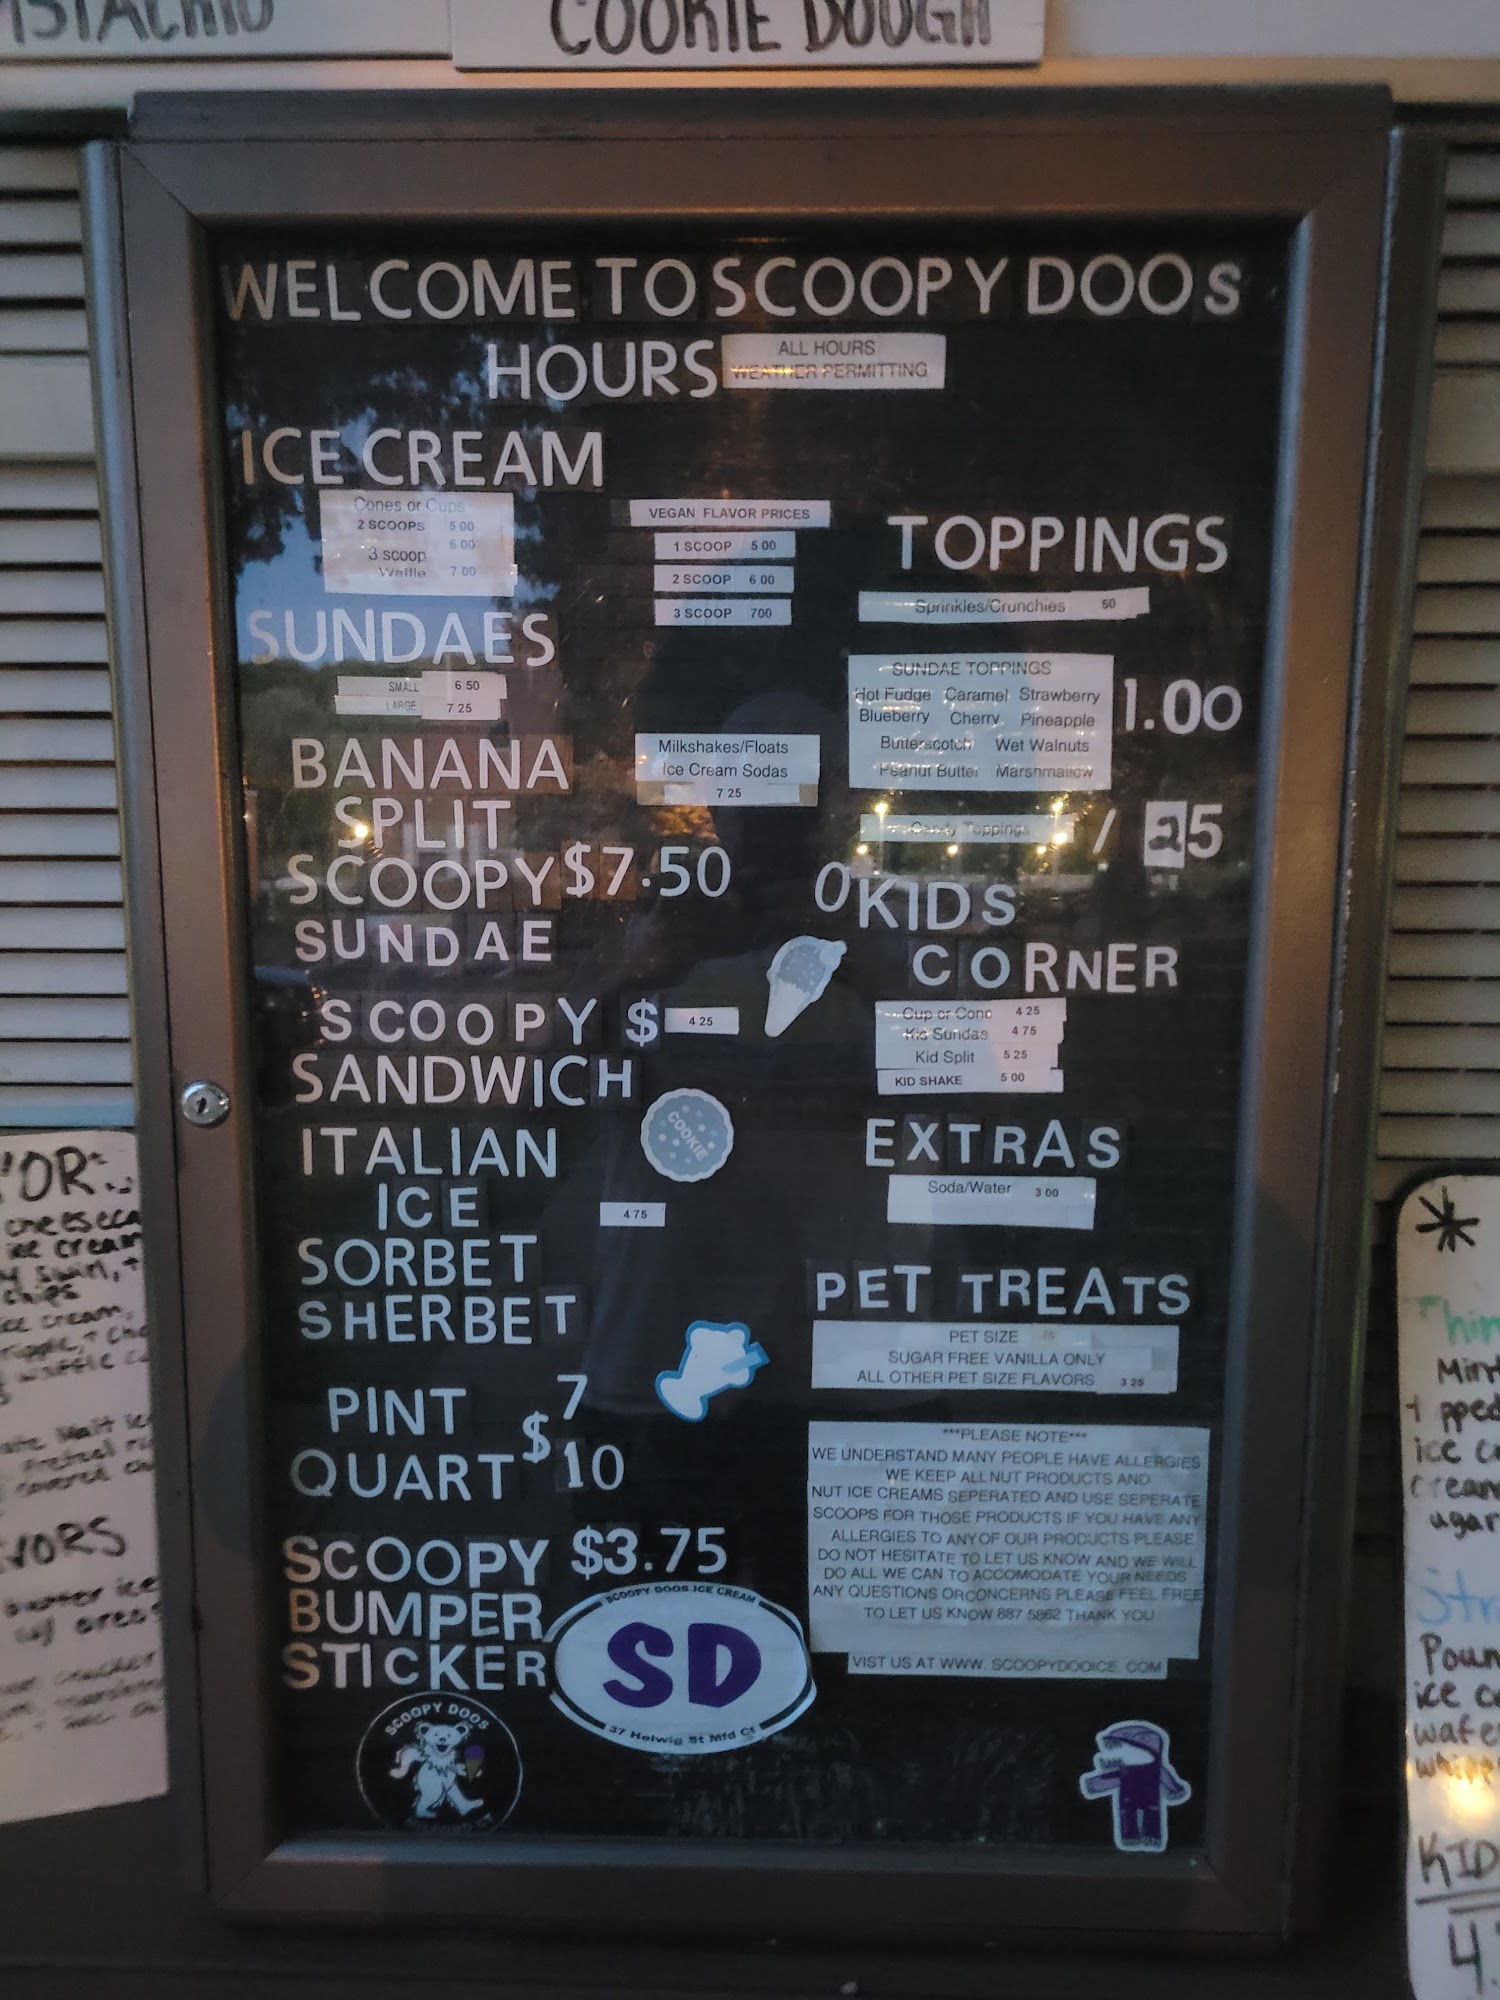 COOKIE DOUGH
WELCOME TO SCOOPY DOOs
HOURS
ALL HOURS
WEATHER PERMITTING
ICE CREAM
Cones or Cups
2 SCOOPS 5 00
3 scoop 6 00
Waffle 7 00
VEGAN FLAVOR PRICES
1 SCOOP 5 00
2 SCOOP 6 00
3 SCOOP 700
SUNDAES
SMALL 6 50
LARGE 7 25
BANANA
SPLIT
SCOOPY $7.50
SUNDAE
Milkshakes/Floats
Ice Cream Sodas
7 25
SCOOPY $ 4 25
SANDWICH
COOKIE
ITALIAN
ICE
4 75
SORBET
SHERBET
PINT
QUART
$ 7
10
SCOOPY $3.75
BUMPER
STICKER
SCOOPY DOOS ICE CREAM
SD
37 Helwig St Mfd Ct
SCOOPY DOOS
TOPPINGS
Sprinkles/Crunchies 50
SUNDAE TOPPINGS
Hot Fudge Caramel Strawberry
Blueberry Cherry Pineapple
Butterscotch Wet Walnuts
Peanut Butter Marshmallow
1.00
Candy Toppings
/ 25
0KIDS
CORNER
Cup or Cone 4 25
Kid Sundae 4 75
Kid Split 5 25
KID SHAKE 5 00
EXTRAS
Soda/Water 3 00
PET TREATS
PET SIZE
SUGAR FREE VANILLA ONLY
ALL OTHER PET SIZE FLAVORS 3 25
***PLEASE NOTE***
WE UNDERSTAND MANY PEOPLE HAVE ALLERGIES
WE KEEP ALL NUT PRODUCTS AND
NUT ICE CREAMS SEPERATED AND USE SEPERATE
SCOOPS FOR THOSE PRODUCTS IF YOU HAVE ANY
ALLERGIES TO ANY OF OUR PRODUCTS PLEASE
DO NOT HESITATE TO LET US KNOW AND WE WILL
DO ALL WE CAN TO ACCOMODATE YOUR NEEDS
ANY QUESTIONS OR CONCERNS PLEASE FEEL FREE
TO LET US KNOW 887 5862 THANK YOU
VIST US AT WWW. SCOOPYDOOICE. COM